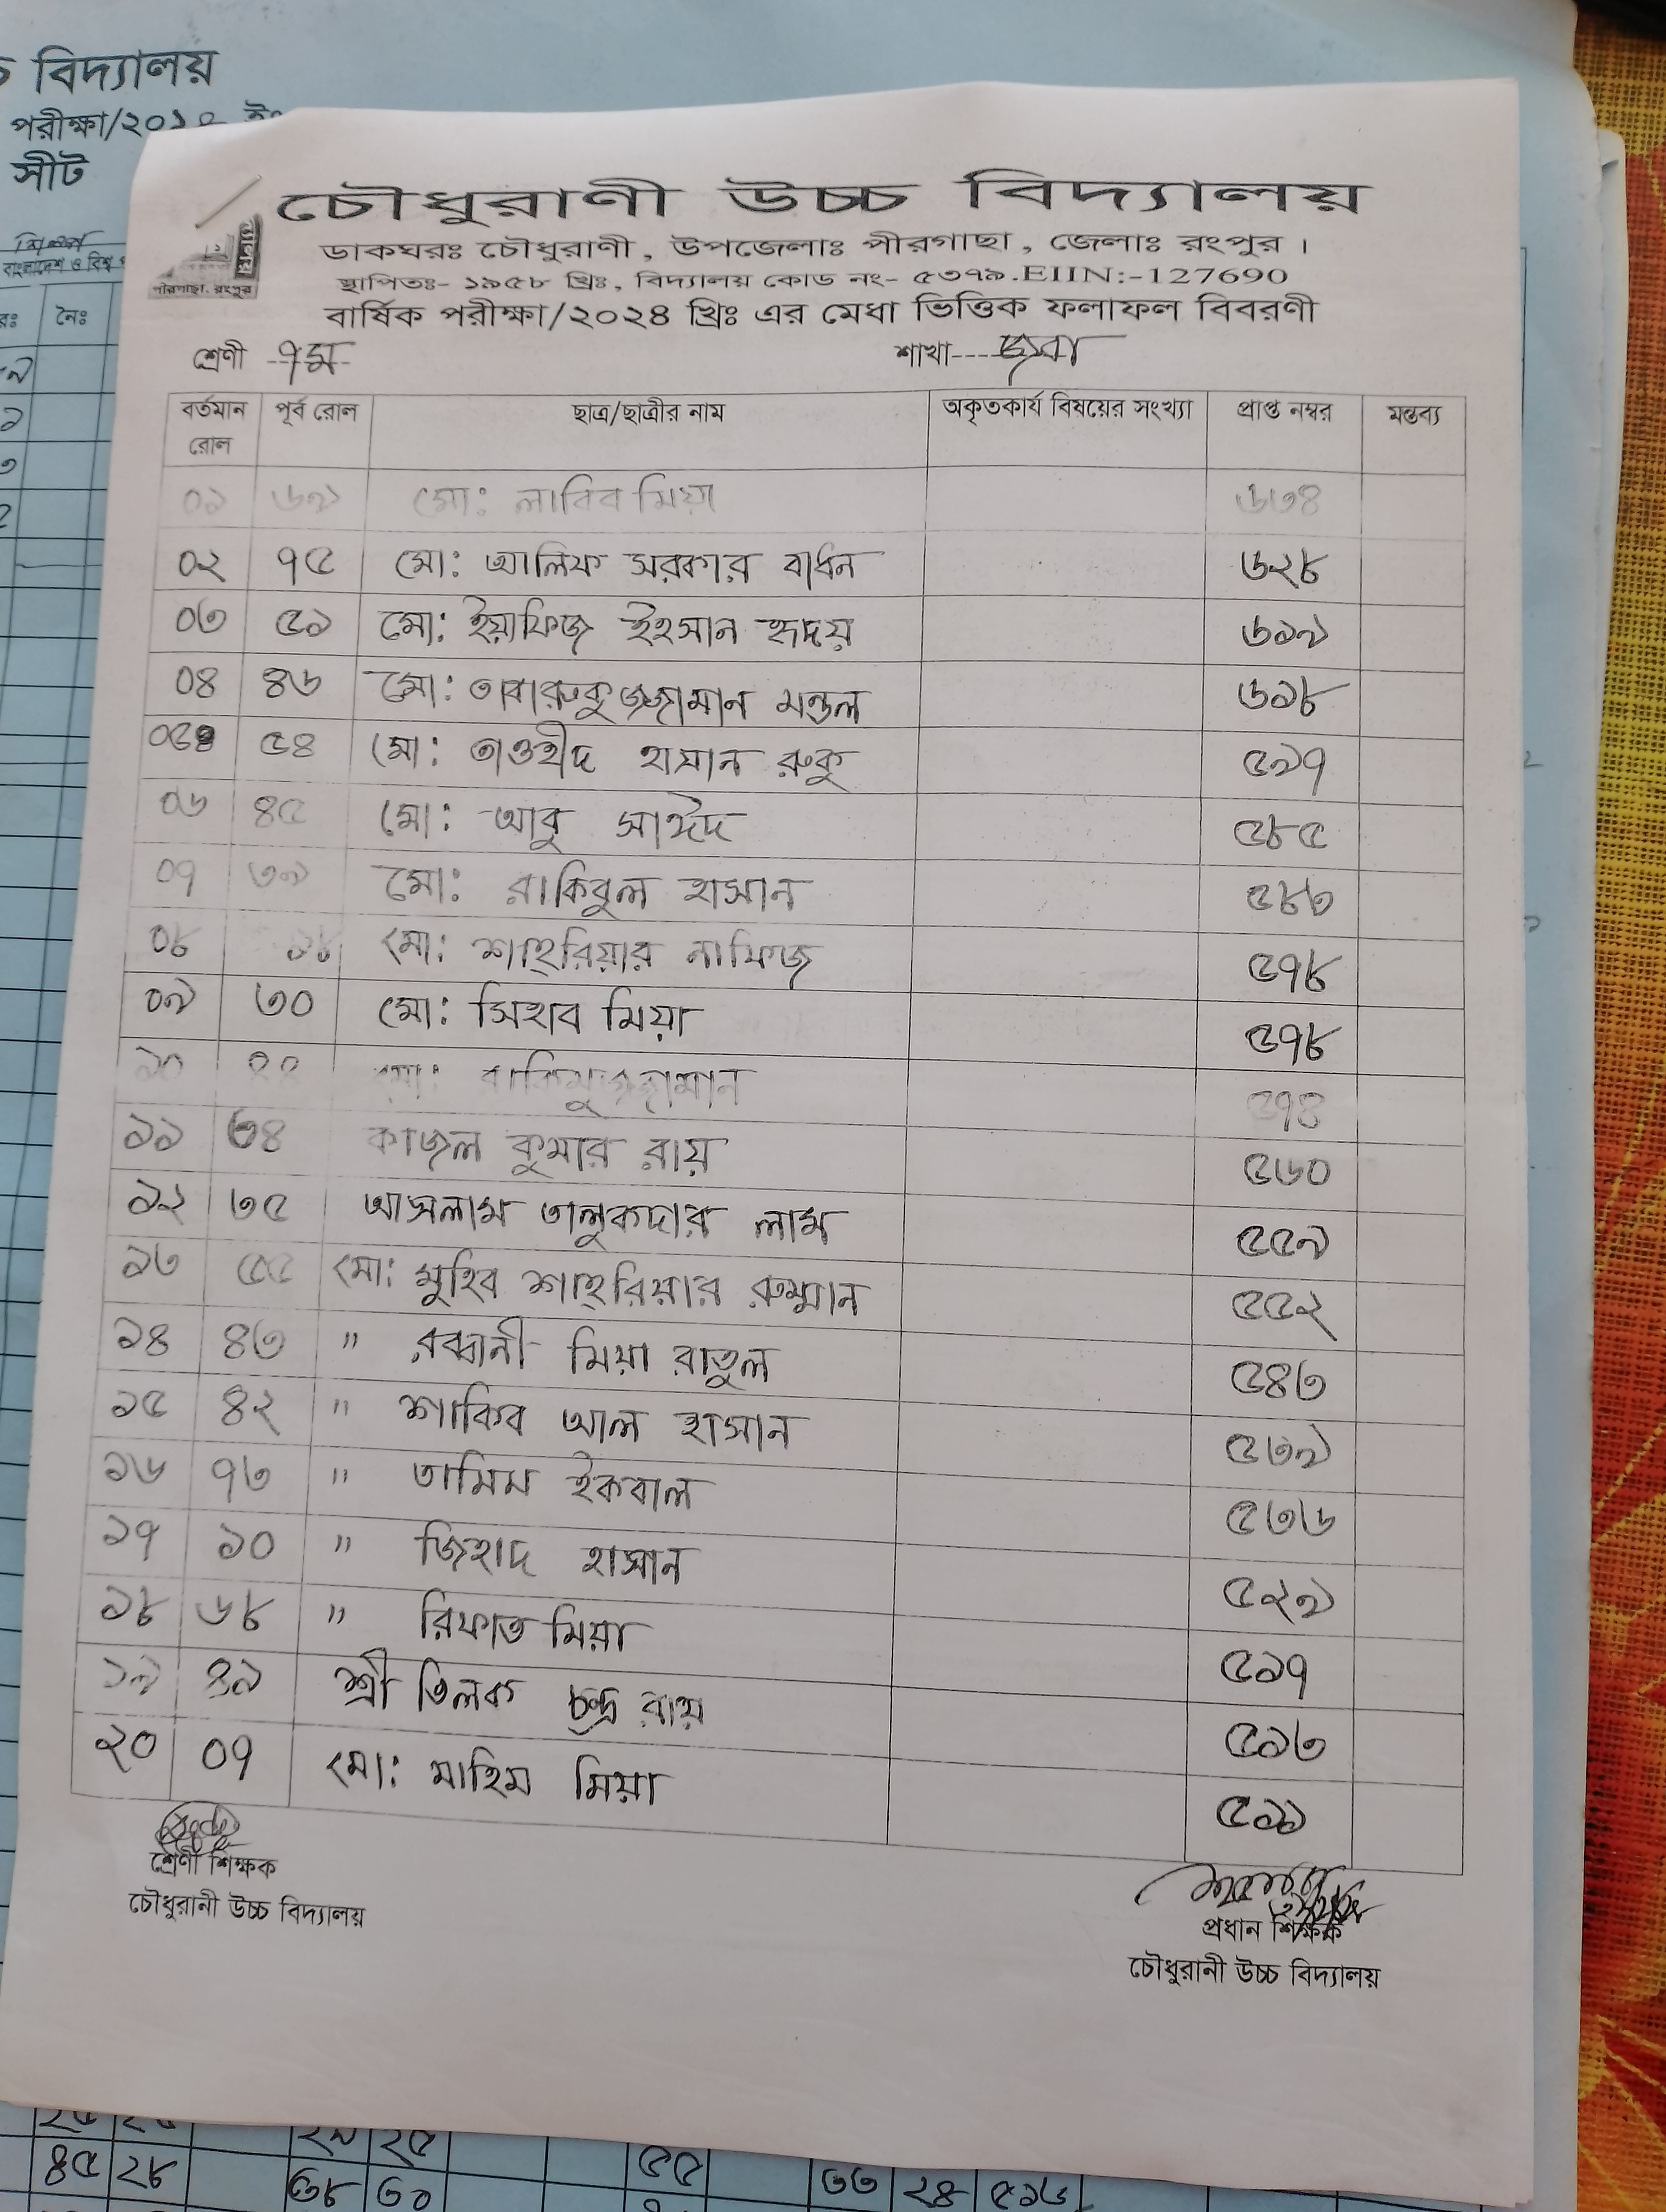 চ বিদ্যালয়
পরীক্ষা/২০১
সীট
বাংলাদেশ ও বিশ্ব
নৈঃ
চৌধুরাণী উচ্চ বিদ্যালয়
ডাকঘরঃ চৌধুরাণী, উপজেলাঃ পীরগাছা, জেলাঃ রংপুর।
স্থাপিতঃ- ১৯৫৮ খ্রিঃ, বিদ্যালয় কোড নং- ৫৩৭৯.EIIN:-127690
পীরগাছা, রংপুর
বার্ষিক পরীক্ষা/২০২৪ খ্রিঃ এর মেধা ভিত্তিক ফলাফল বিবরণী
শ্রেণী -৭ম- শাখা----জবা
বর্তমান রোল পূর্ব রোল ছাত্র/ছাত্রীর নাম অকৃতকার্য বিষয়ের সংখ্যা প্রাপ্ত নম্বর মন্তব্য
০১ ৬৯ মো: লাবিব মিয়া ৬৩৪
০২ ৭৫ মো: আলিফ সরকার বাধন ৬২৮
০৩ ৫১ মো: ইয়াফিজ ইহসান হৃদয় ৬১৯
০৪ ৪৬ মো: তাবারুকুজ্জামান মন্ডল ৬১৮
০৫ ৫৪ মো: তাওহীদ হাসান রুকু ৫৯৭
০৬ ৪৫ মো: আবু সাঈদ ৫৮৫
০৭ ৩৯ মো: রাকিবুল হাসান ৫৮৩
০৮ ১৮ মো: শাহ্‌রিয়ার নাফিজ ৫৭৮
০৯ ৩০ মো: সিহাব মিয়া ৫৭৮
১০ ৪৪ মো: রাকিমুজ্জামান ৫৭৪
১১ ৩৪ কাজল কুমার রায় ৫৬০
১২ ৩৫ আসলাম তালুকদার লাম ৫৫৯
১৩ ৫৫ মো: মুহিব শাহ্‌রিয়ার রুম্মান ৫৫২
১৪ ৪৩ " রব্বানী মিয়া রাতুল ৫৪৩
১৫ ৪২ " শাকিব আল হাসান ৫৩৯
১৬ ৭৩ " তামিম ইকবাল ৫৩৬
১৭ ১০ " জিহাদ হাসান ৫২৯
১৮ ৬৮ " রিফাত মিয়া ৫১৭
১৯ ৪১ শ্রী তিলক চন্দ্র রায় ৫১৩
২০ ০৭ মো: মাহিম মিয়া ৫১১
শ্রেণী শিক্ষক
চৌধুরানী উচ্চ বিদ্যালয়
প্রধান শিক্ষক
চৌধুরানী উচ্চ বিদ্যালয়
২৫
৪৫ ২৮ ৩৮ ৩০ ৫৫ ৩৩ ২৪ ৫১৬